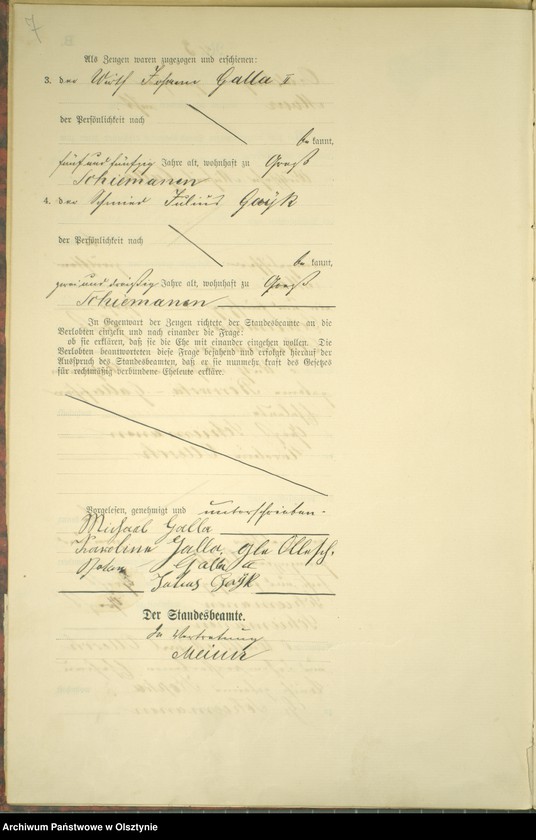 7
Als Zeugen waren zugezogen und erschienen:
3. der Wirth Johann Galla II
der Persönlichkeit nach
be kannt,
fünf und fünfzig Jahre alt, wohnhaft zu Groß
Schiemanen
4. der Schmied Julius Gayk
der Persönlichkeit nach
be kannt,
zwei und dreißig Jahre alt, wohnhaft zu Groß
Schiemanen
In Gegenwart der Zeugen richtete der Standesbeamte an die
Verlobten einzeln und nach einander die Frage:
ob sie erklären, daß sie die Ehe mit einander eingehen wollen. Die
Verlobten beantworteten diese Frage bejahend und erfolgte hierauf der
Ausspruch des Standesbeamten, daß er sie nunmehr kraft des Gesetzes
für rechtmäßig verbundene Eheleute erkläre.
Vorgelesen, genehmigt und unterschrieben.
Michael Galla
Karoline Galla, geb Ollesch.
Galla II
Julius Gayk
Der Standesbeamte.
In Vertretung
Archiwum Państwowe w Olsztynie